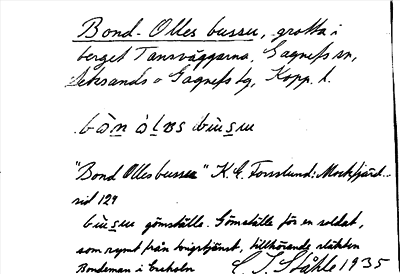 Bond-Olles bussu, grotta i
berget Tansväggarna, Gagnefs sn,
Leksands o Gagnefs tg, Kopp. l.
"Bond Olles bussu" K. E. Forsslund: Mockfjärd
sid 129
gömställe. Gömställe för en soldat,
som rymt från krigstjänst, tillhörande släkten
Bondeman i Ersholn C. I. Ståhle 1935